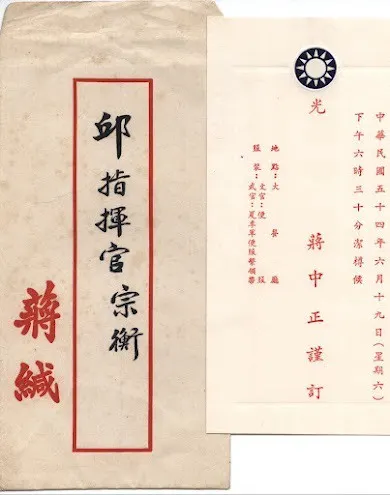 邱指揮官宗衡
蔣緘
中華民國五十四年六月十九日(星期六)
下午六時三十分潔樽候
光
蔣中正謹訂
地點：大廳
服裝：文官：便服
武官：夏季軍便服繫領帶